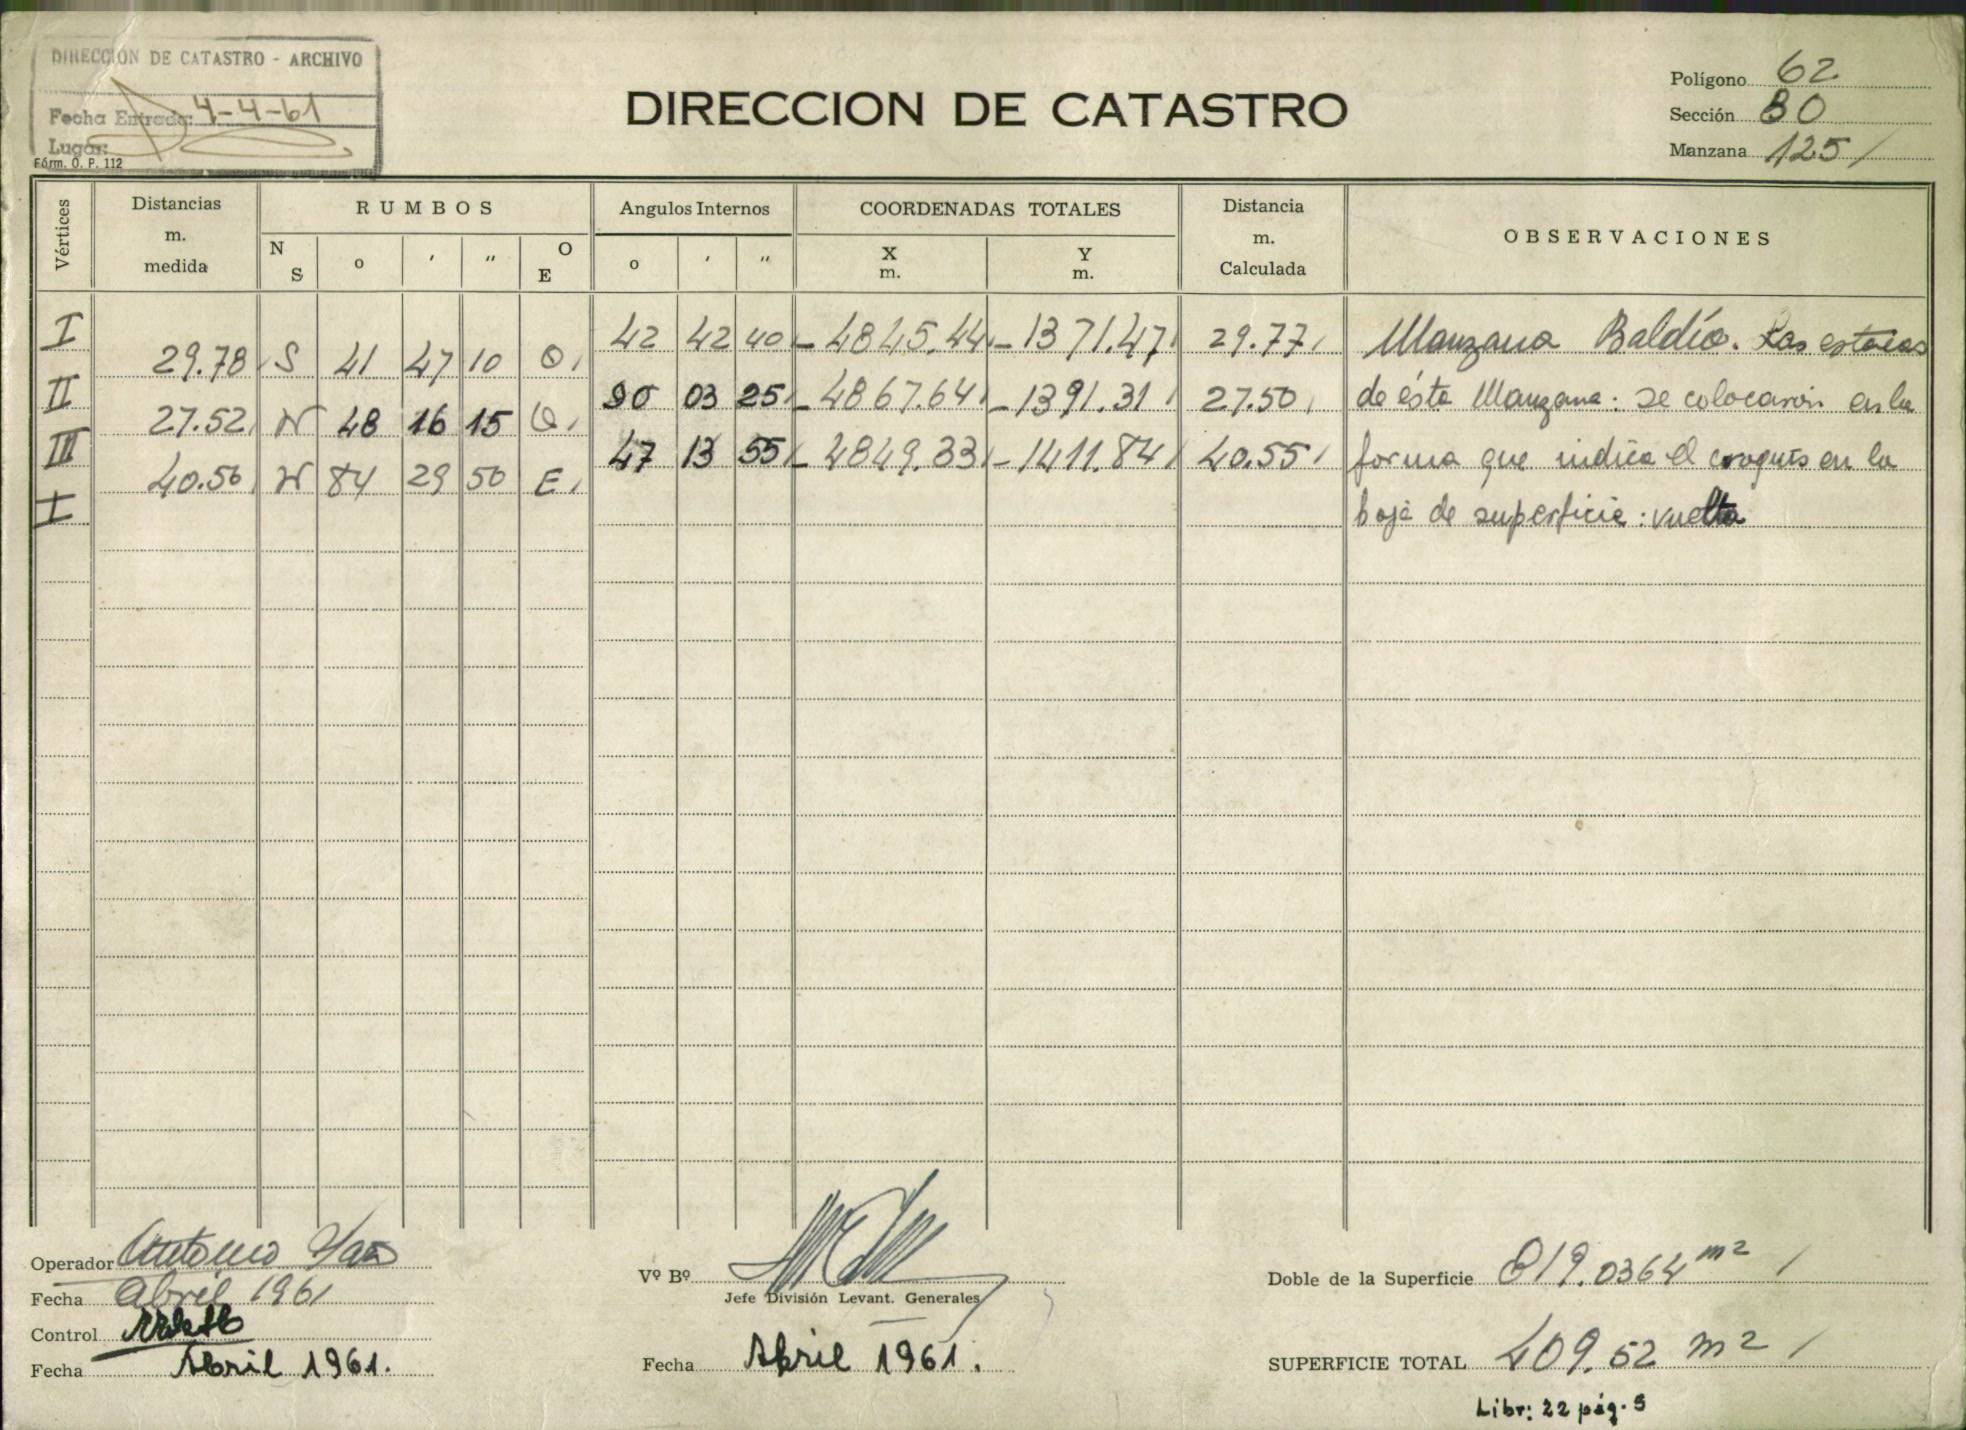 DIRECCION DE CATASTRO - ARCHIVO
Fecha Entrada: 4-4-61
Lugar:
Fórm. O. P. 112
DIRECCION DE CATASTRO
Polígono 62
Sección 80
Manzana 125
Vértices Distancias m. medida RUMBOS Angulos Internos COORDENADAS TOTALES Distancia m. Calculada OBSERVACIONES
N S o ′ ″ O E o ′ ″ X m. Y m.
I 42 42 40 -4845.44 -1371.47 29.77 Manzana Baldío. Las estacas
29.78 S 41 47 10 O
II 90 03 25 -4867.64 -1391.31 27.50 de ésta Manzana: se colocaron en la
27.52 N 48 16 15 O
III 47 13 55 -4849.33 -1411.84 40.55 forma que indica el croquis en la
40.56 N 84 29 50 E
I hoja de superficie: vuelta
Operador Antonio
Fecha Abril 1961
Control
Fecha Abril 1961.
Vº Bº
Jefe División Levant. Generales
Fecha Abril 1961.
Doble de la Superficie 819.0364 m2
SUPERFICIE TOTAL 409.52 m2
Libr: 22 pág. 5